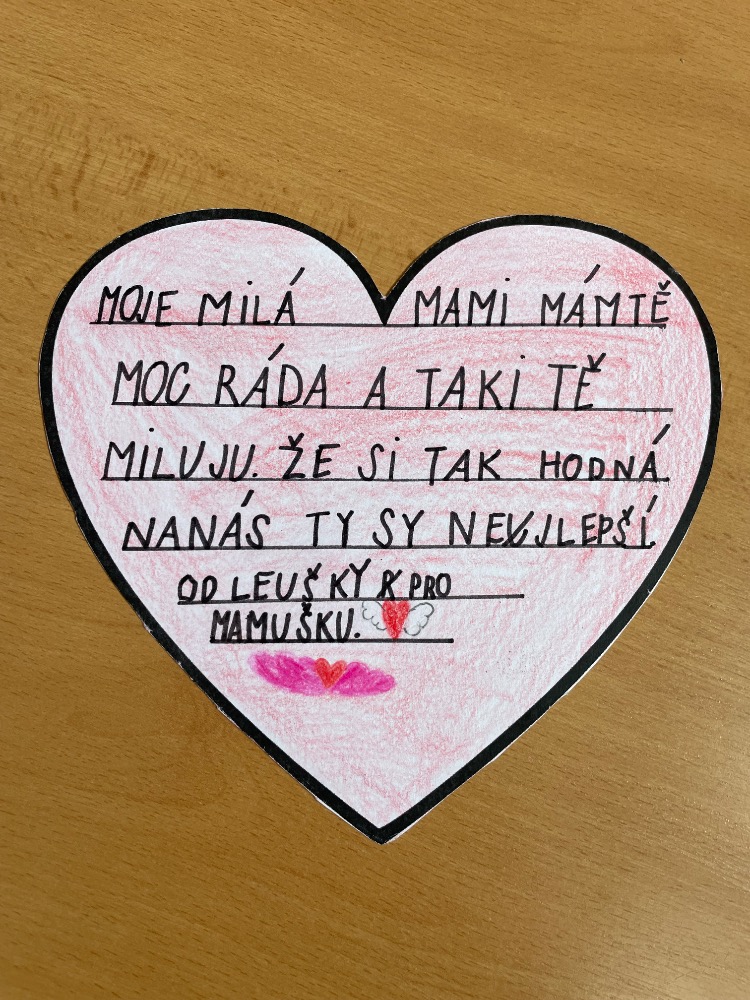 MOJE MiLÁ MAMi MÁMTĚ
MOC RÁDA A TAKi TĚ
MiLUJU. ŽE Si TAK HODNÁ.
NANÁS TY SY NEJLEPŠÍ
OD LEUŠKY PRO
MAMUŠKU.